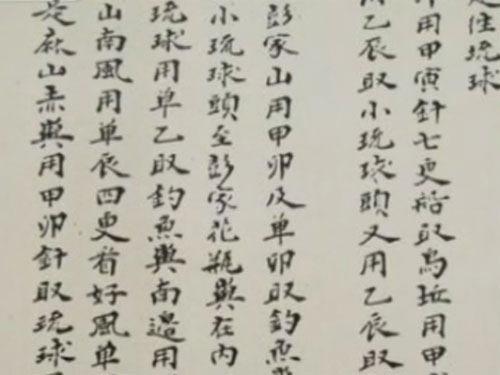 往琉球
用甲寅針七更船取烏坵用甲
用乙辰取小琉球頭又用乙辰取
彭家山用甲卯及单卯取釣魚
小琉球頭至彭家花瓶嶼在内
琉球用单乙取釣魚嶼南邊用
山南風用单辰四更看好風单
是麻山赤嶼用甲卯針取琉球